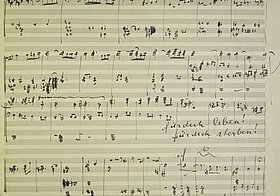 für dich leben!
für dich sterben!